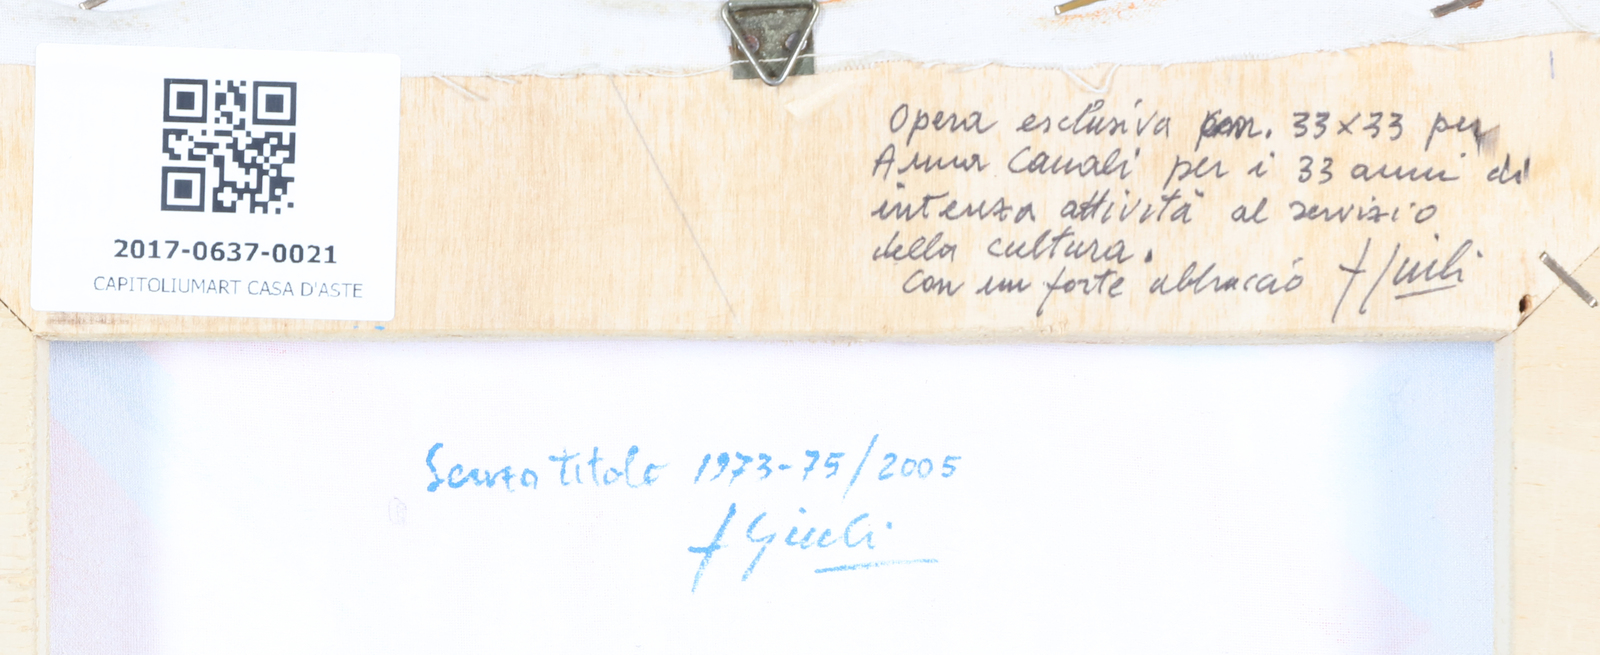 2017-0637-0021
CAPITOLIUMART CASA D'ASTE
Opera esclusiva cm. 33x33 per
Anna Canali per i 33 anni di
intenza attività al servizio
della cultura.
Con un forte abbraccio f Giuli
Senza titolo 1973-75/2005
f Giuli